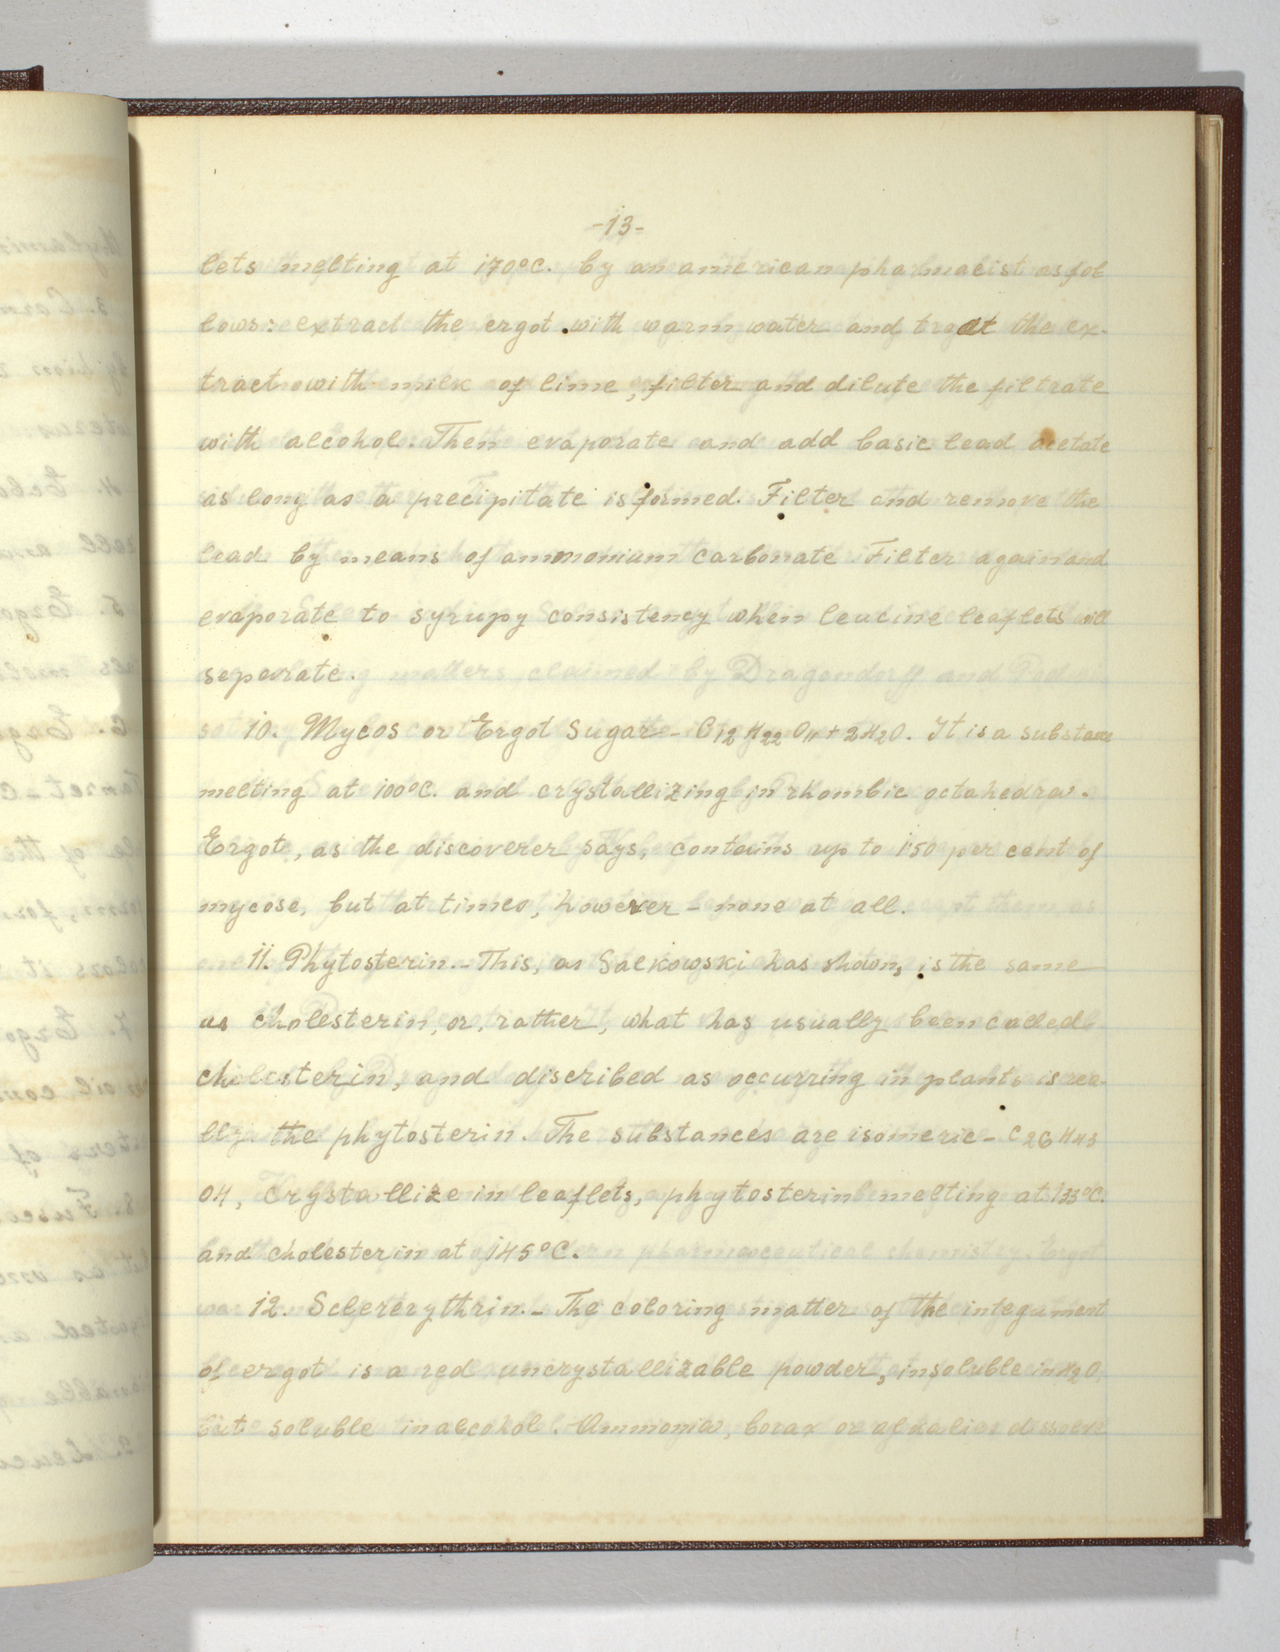 -13-
lets melting at 170°C. by an american pharmacist as fol
lows: extract the ergot with warm water and treat the ex-
tract with milk of lime, filter and dilute the filtrate
with alcohol. Then evaporate and add basic lead acetate
as long as a precipitate is formed. Filter and remove the
lead by means of ammonium carbonate. Filter again and
evaporate to syrupy consistency when leucine leaflets will
separate.
10. Mycos or Ergot Sugar - C12 H22 O11 + 2H2O. It is a substance
melting at 100°C. and crystallizing in rhombic octahedra.
Ergot, as the discoverer says, contains up to 150 per cent of
mycose, but at times, however - none at all.
11. Phytosterin. - This, as Salkowski has shown, is the same
as cholesterin, or, rather, what has usually been called
cholesterin, and discribed as occurring in plants is rea-
lly the phytosterin. The substances are isomeric - C26 H43
OH, Crystallize in leaflets, phytosterin melting at 133°C.
and cholesterin at 145°C.
12. Sclererythrin. - The coloring matter of the integument
of ergot is a red uncrystallizable powder, insoluble in H2O,
but soluble in alcohol. Ammonia, borax or alkalies dissolve